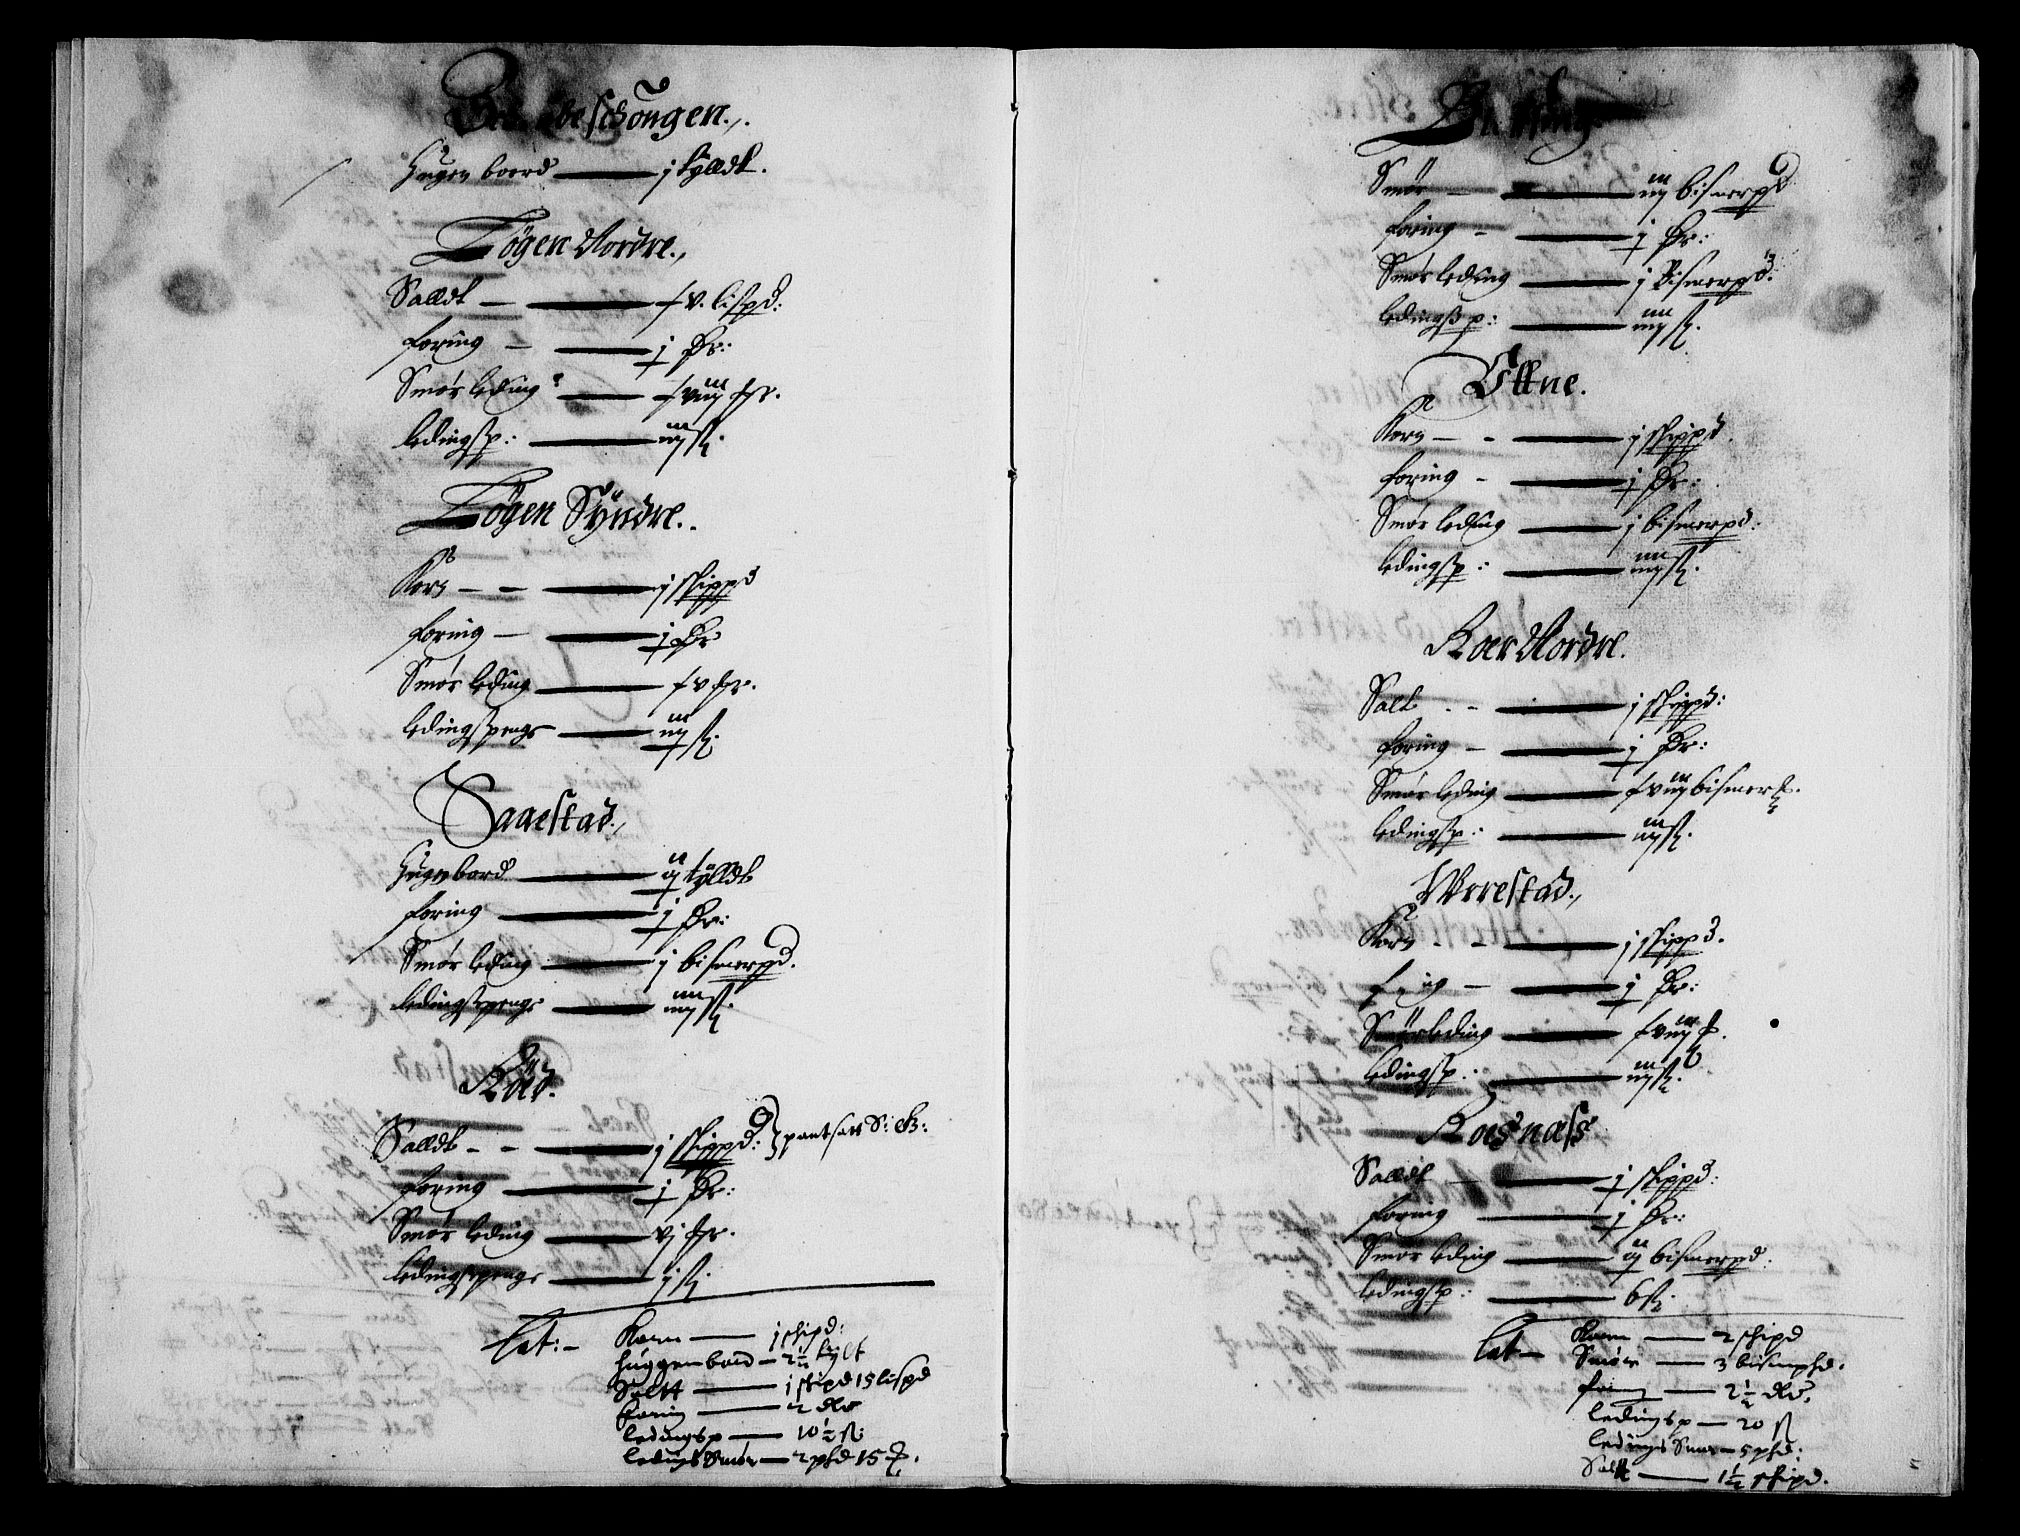 beschougen.
Hugen boerd — j tylldt.
Løgen Nordre.
Salldt — xv. lispd:
foring — j Dr:
Smør leding — xviij mr.
ledingsp: — iij sk.
Løgen Syndre.
Korn — j skippd
foring — j Dr
Smør leding — xv mr.
ledingspenge — iij sk.
Saaestad.
Hugenbord — ij tylldt
foring — j Dr:
Smør leding — j bismerpd.
ledingspenge — iiij sk.
Røed.
Salldt — j skippd: pantsatt S: B:
foring — j Dr:
Smør leding — vj mr.
ledingspenge — j sk.
Lat: Korn — j skipd:
huggenbord — 2½ tylt
Saltt — j skipd 15 lispd
foring — 2 dlr
ledingsp — 10½ sk:
ledings Smør — 2 phd 15
Smør — iij bismerpd
foring — j Dr:
Smør leding — j Bismerpd.
ledings p: — iiij sk.
Uttne.
Korn — j skippd.
foring — j Dr:
Smør leding — j bismerpd:
ledingsp: — iiij sk.
Roer Nordre.
Salt — j skippd:
foring — j Dr:
Smør leding — xviij bismer
ledingsp: — iij sk.
Wrrestad.
Korn — j skippd.
— j Dr:
Smørleding — xviij
ledingsp: — iij sk.
Roesness
Salldt — j skippd:
foring — j Dr:
Smør leding — ij bismerpd.
ledingsp: — 6 sk.
Lat — Korn — 2 skipd
Smør — 3 bismphd.
foring — 2½ dlr.
ledingsp — 20 sk
ledings Smør — 5 phd:
Saltt — 1½ skipd.